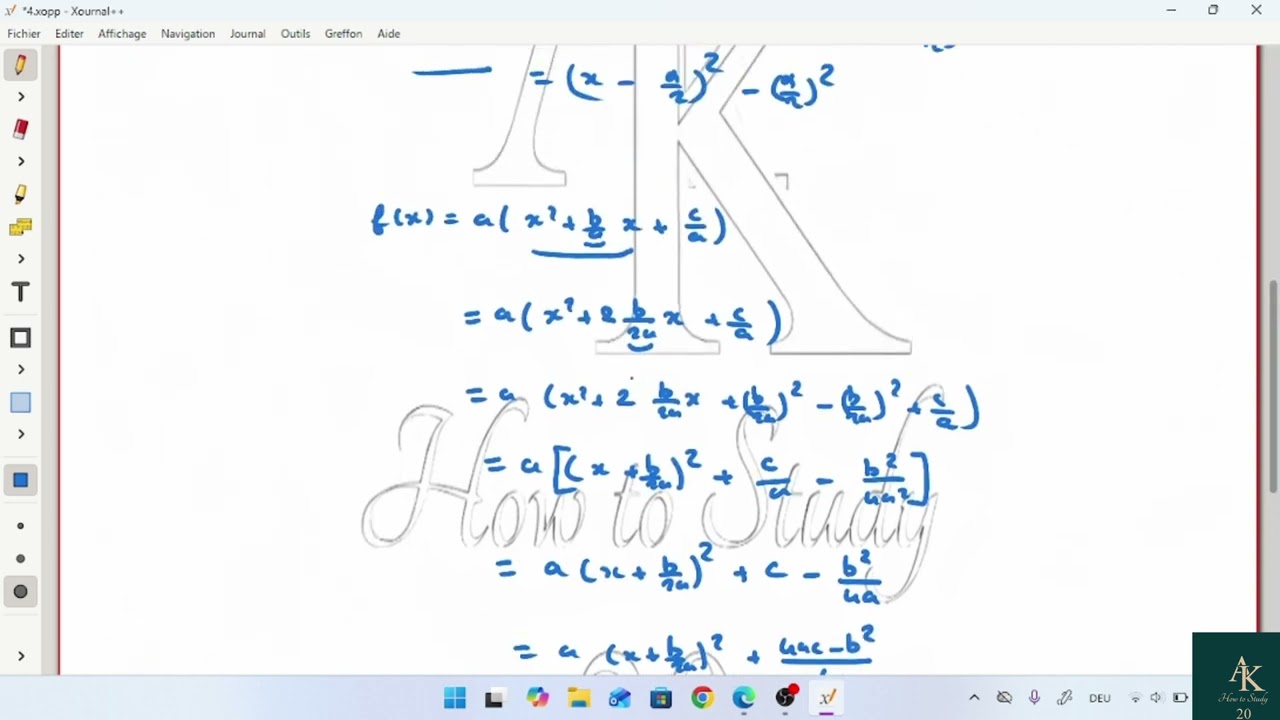 *4.xopp - Xournal++
Fichier Editer Affichage Navigation Journal Outils Greffon Aide
= (x - a/2)² - (a/2)²
f(x) = a( x² + b/a x + c/a )
= a( x² + 2 b/2a x + c/a )
= a (x² + 2 b/2a x + (b/2a)² - (b/2a)² + c/a )
= a [(x + b/2a)² + c/a - b²/4a²]
= a (x + b/2a)² + c - b²/4a
= a (x + b/2a)² + 4ac - b²
How to Study
DEU
AK
How to Study
20